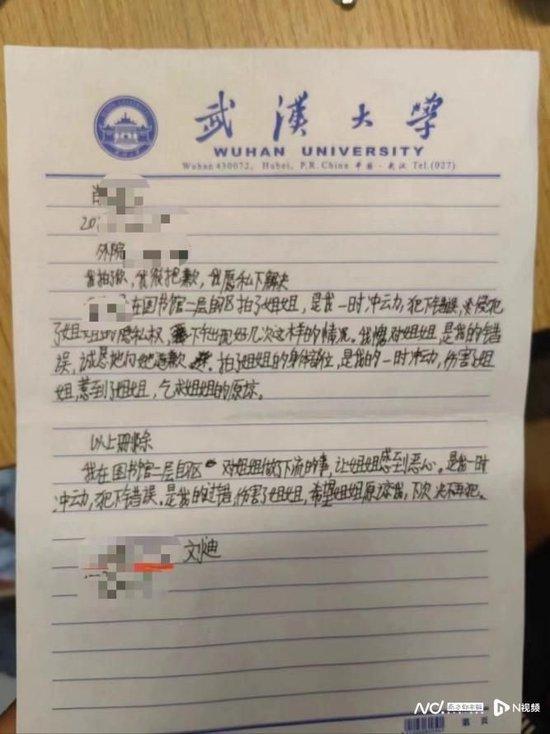 武漢大學
WUHAN UNIVERSITY
Wuhan 430072, Hubei, P.R. China 中国·武汉 Tel.(027)
肖
20
外院
我拍了你,我很抱歉,我愿私下解决
在图书馆二层自习区拍了姐姐,是我一时冲动,犯下错误,侵犯
了姐姐的隐私权,下午出现好几次这样的情况。我愧对姐姐,是我的错
误,诚恳地向她道歉 拍了姐姐的身体部位,是我的一时冲动,伤害了姐
姐,惹到了姐姐,乞求姐姐的原谅。
以上删除
我在图书馆二层自习区 对姐姐做了下流的事,让姐姐感到恶心。是我一时
冲动,犯下错误。是我的过错,伤害了姐姐,希望姐姐原谅我,下次决不再犯。
文迪
第 页
N视频